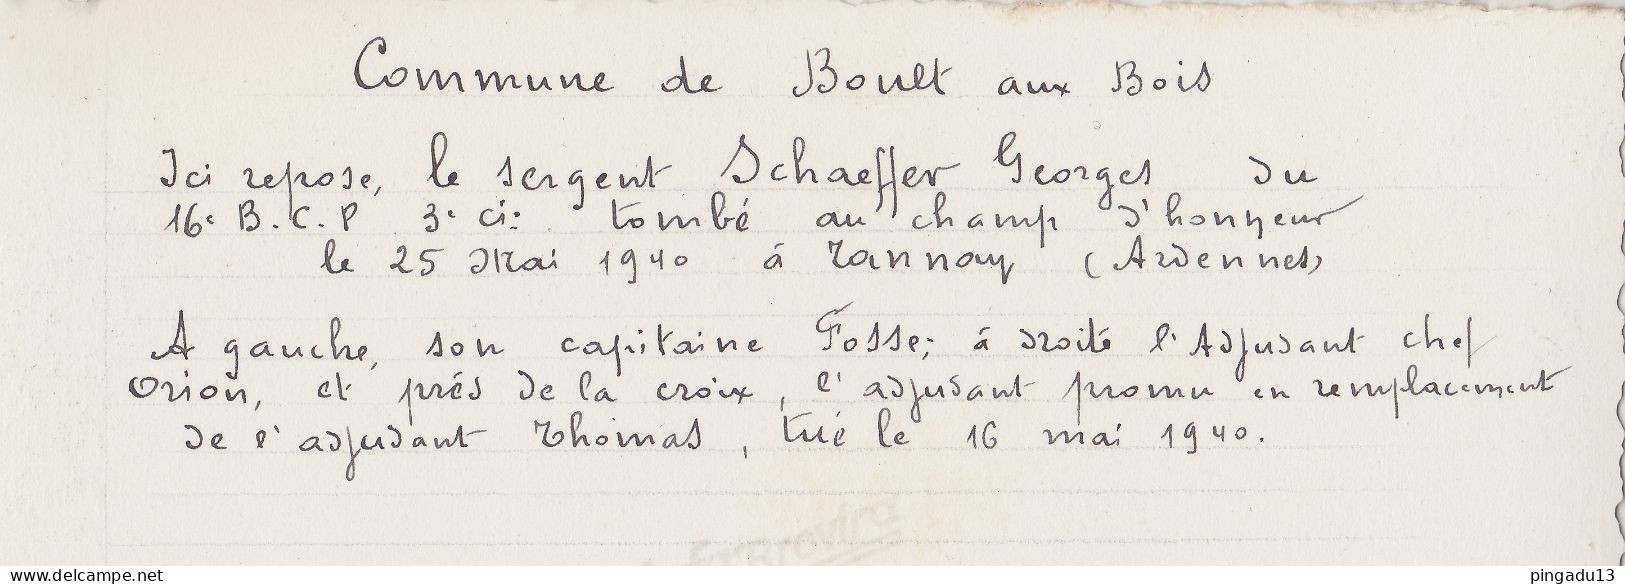 Commune de Boult aux Bois
Ici repose, le sergent Schaeffer Georges du
16e B.C.P 3e cie tombé au champ d'honneur
le 25 Mai 1940 à Tannay (Ardennes)
A gauche, son capitaine Fosse; à droite l'Adjudant chef
Orion, et près de la croix, l'adjudant promu en remplacement
de l'adjudant Thomas, tué le 16 mai 1940.
delcampe.net
pingadu13